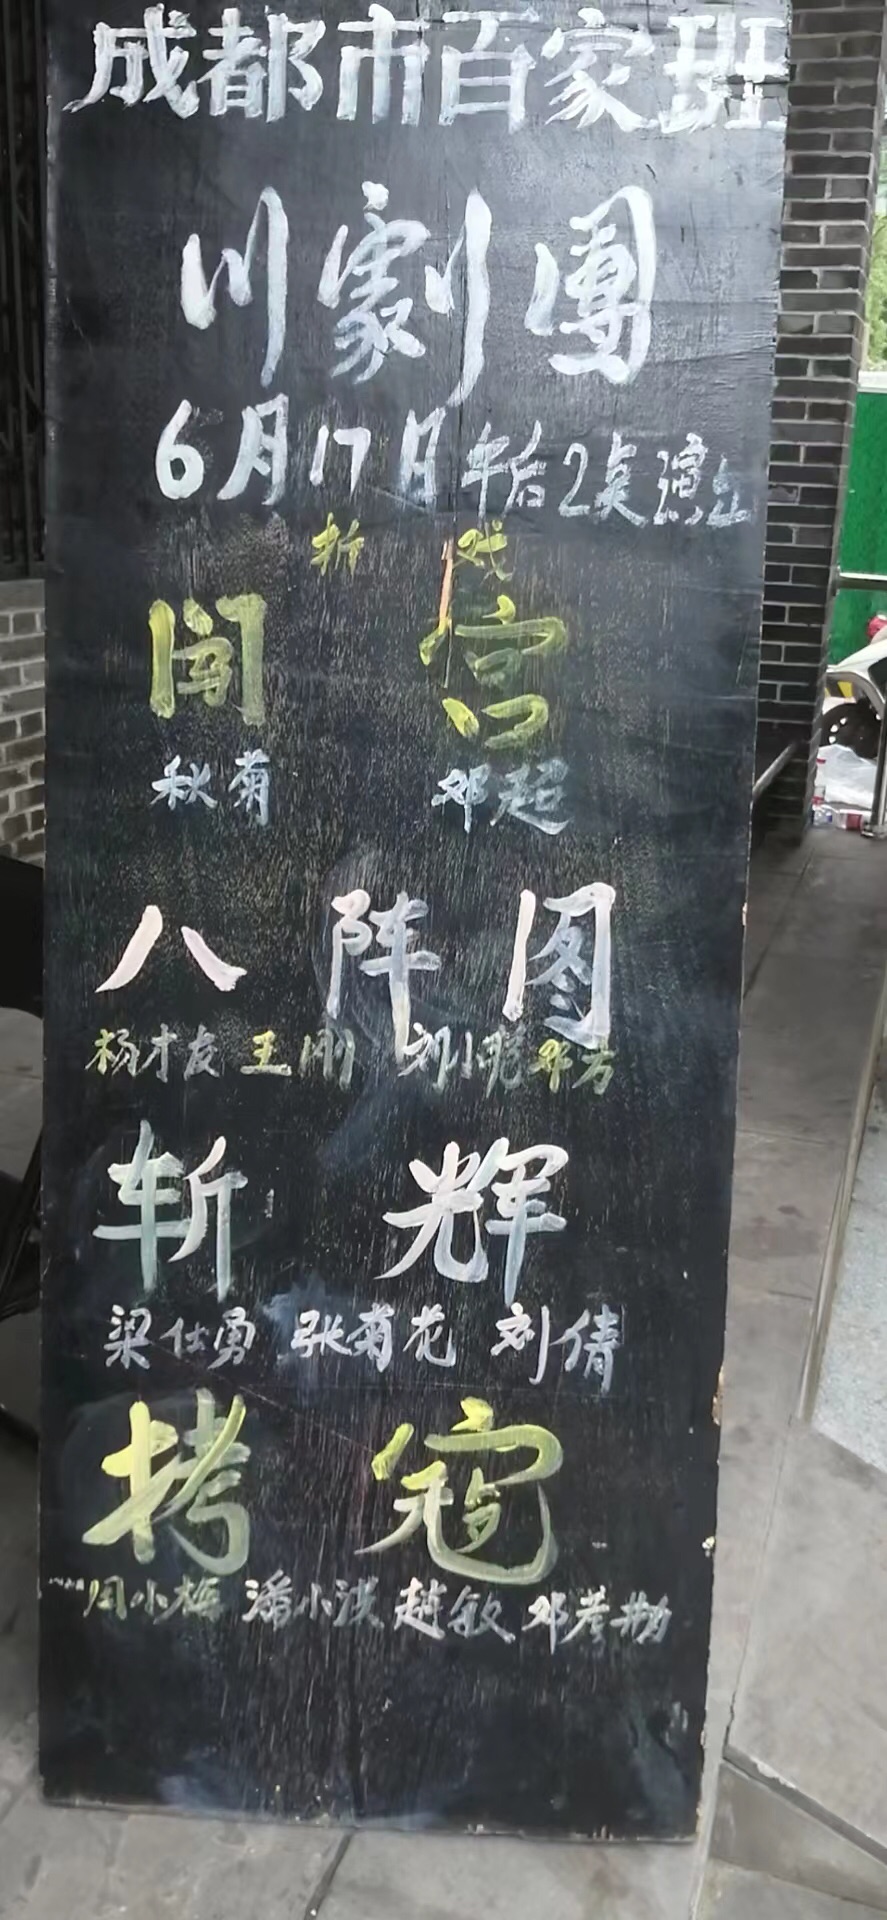 成都市百家班
川劇團
6月17日午后2点演出
折戏
闯宫
秋菊 邓超
八阵图
杨才友 王刚 刘小彪 平方
斩辉
梁仕勇 张菊花 刘倩
拷寇
周小梅 潘小洪 赵敏 邓